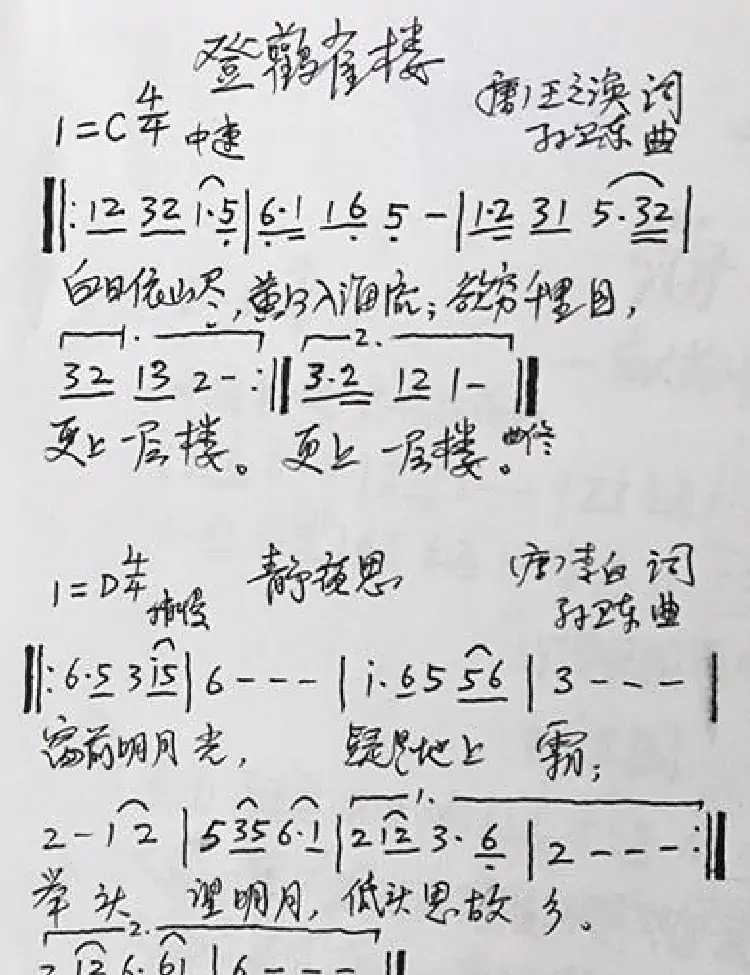 登鸛雀楼
1=C 4/4 中速 (唐)王之涣 词
孙卫东 曲
‖: 12 32 1·5 | 6·1 16 5 - | 1·2 31 5·32 |
白日依山尽,黄河入海流;欲穷千里目,
1. 32 13 2- :‖ 2. 3·2 12 1- ‖
更上一层楼。更上一层楼。曲终
1=D 4/4 稍慢 静夜思 (唐)李白 词
孙卫东 曲
‖: 6·5 3 i5 | 6 - - - | i·65 56 | 3 - - - |
窗前明月光, 疑是地上 霜;
2-12 | 5356·1 | 1. 2123·6 | 2 - - - :‖
举头 望明月,低头思故乡。
2. 2126·61 | 6 - - - ‖